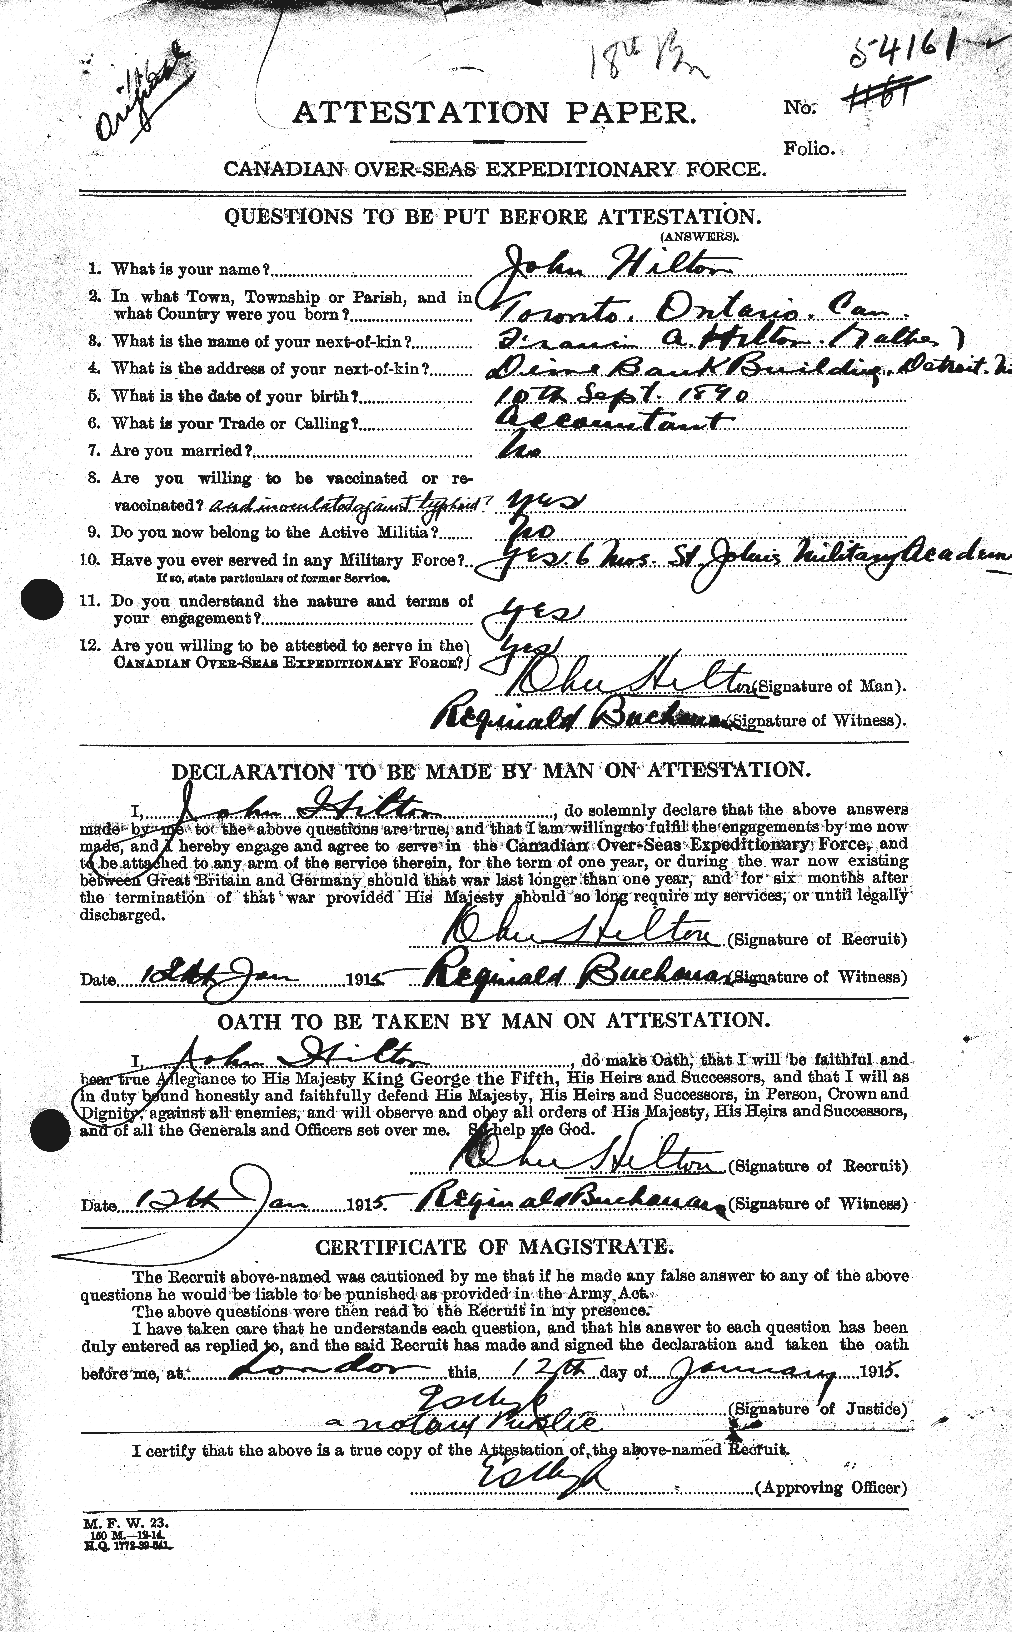 18th Bn
54161
ATTESTATION PAPER.
No.
Folio.
CANADIAN OVER-SEAS EXPEDITIONARY FORCE.
QUESTIONS TO BE PUT BEFORE ATTESTATION.
(ANSWERS).
1. What is your name? John Hilton
2. In what Town, Township or Parish, and in
what Country were you born? Toronto. Ontario. Can.
3. What is the name of your next-of-kin? A. Hilton. (Father)
4. What is the address of your next-of-kin? Dime Bank Building, Detroit.
5. What is the date of your birth? 10th Sept. 1890
6. What is your Trade or Calling? Accountant
7. Are you married? No
8. Are you willing to be vaccinated or re-
vaccinated? and inoculated against typhoid? Yes
9. Do you now belong to the Active Militia? No
10. Have you ever served in any Military Force? Yes. 6 Mos. St. Johns Military Academ
If so, state particulars of former Service.
11. Do you understand the nature and terms of
your engagement? Yes
12. Are you willing to be attested to serve in the
CANADIAN OVER-SEAS EXPEDITIONARY FORCE? Yes
John Hilton (Signature of Man).
Reginald Buchanan (Signature of Witness).
DECLARATION TO BE MADE BY MAN ON ATTESTATION.
I, John Hilton, do solemnly declare that the above answers
made by me to the above questions are true, and that I am willing to fulfil the engagements by me now
made, and I hereby engage and agree to serve in the Canadian Over-Seas Expeditionary Force, and
to be attached to any arm of the service therein, for the term of one year, or during the war now existing
between Great Britain and Germany should that war last longer than one year, and for six months after
the termination of that war provided His Majesty should so long require my services, or until legally
discharged.
John Hilton (Signature of Recruit)
Date 12th Jan 1915 Reginald Buchanan (Signature of Witness)
OATH TO BE TAKEN BY MAN ON ATTESTATION.
I, John Hilton, do make Oath, that I will be faithful and
bear true Allegiance to His Majesty King George the Fifth, His Heirs and Successors, and that I will as
in duty bound honestly and faithfully defend His Majesty, His Heirs and Successors, in Person, Crown and
Dignity, against all enemies, and will observe and obey all orders of His Majesty, His Heirs and Successors,
and of all the Generals and Officers set over me. So help me God.
John Hilton (Signature of Recruit)
Date 12th Jan 1915 Reginald Buchanan (Signature of Witness)
CERTIFICATE OF MAGISTRATE.
The Recruit above-named was cautioned by me that if he made any false answer to any of the above
questions he would be liable to be punished as provided in the Army Act.
The above questions were then read to the Recruit in my presence.
I have taken care that he understands each question, and that his answer to each question has been
duly entered as replied to, and the said Recruit has made and signed the declaration and taken the oath
before me, at London this 12th day of January 1915.
(Signature of Justice)
a notary Public
I certify that the above is a true copy of the Attestation of the above-named Recruit.
(Approving Officer)
M. F. W. 23.
150 M.—12-14.
H.Q. 1772-39-841.